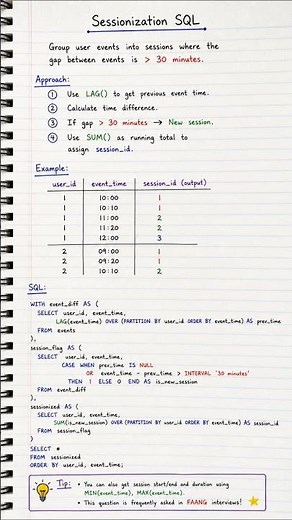 Sessionization SQL
Group user events into sessions where the
gap between events is > 30 minutes.
Approach:
1 Use LAG() to get previous event time.
2 Calculate time difference.
3 If gap > 30 minutes → New session.
4 Use SUM() as running total to
assign session_id.
Example:
user_id event_time session_id (output)
1 10:00 1
1 10:10 1
1 11:00 2
1 11:20 2
1 12:00 3
2 09:00 1
2 09:20 1
2 10:10 2
SQL:
WITH event_diff AS (
SELECT user_id, event_time,
LAG(event_time) OVER (PARTITION BY user_id ORDER BY event_time) AS prev_time
FROM events
),
session_flag AS (
SELECT user_id, event_time,
CASE WHEN prev_time IS NULL
OR event_time - prev_time > INTERVAL '30 minutes'
THEN 1 ELSE 0 END AS is_new_session
FROM event_diff
),
sessionized AS (
SELECT user_id, event_time,
SUM(is_new_session) OVER (PARTITION BY user_id ORDER BY event_time) AS session_id
FROM session_flag
)
SELECT *
FROM sessionized
ORDER BY user_id, event_time;
Tip:
• You can also get session start/end and duration using
MIN(event_time), MAX(event_time).
• This question is frequently asked in FAANG interviews!